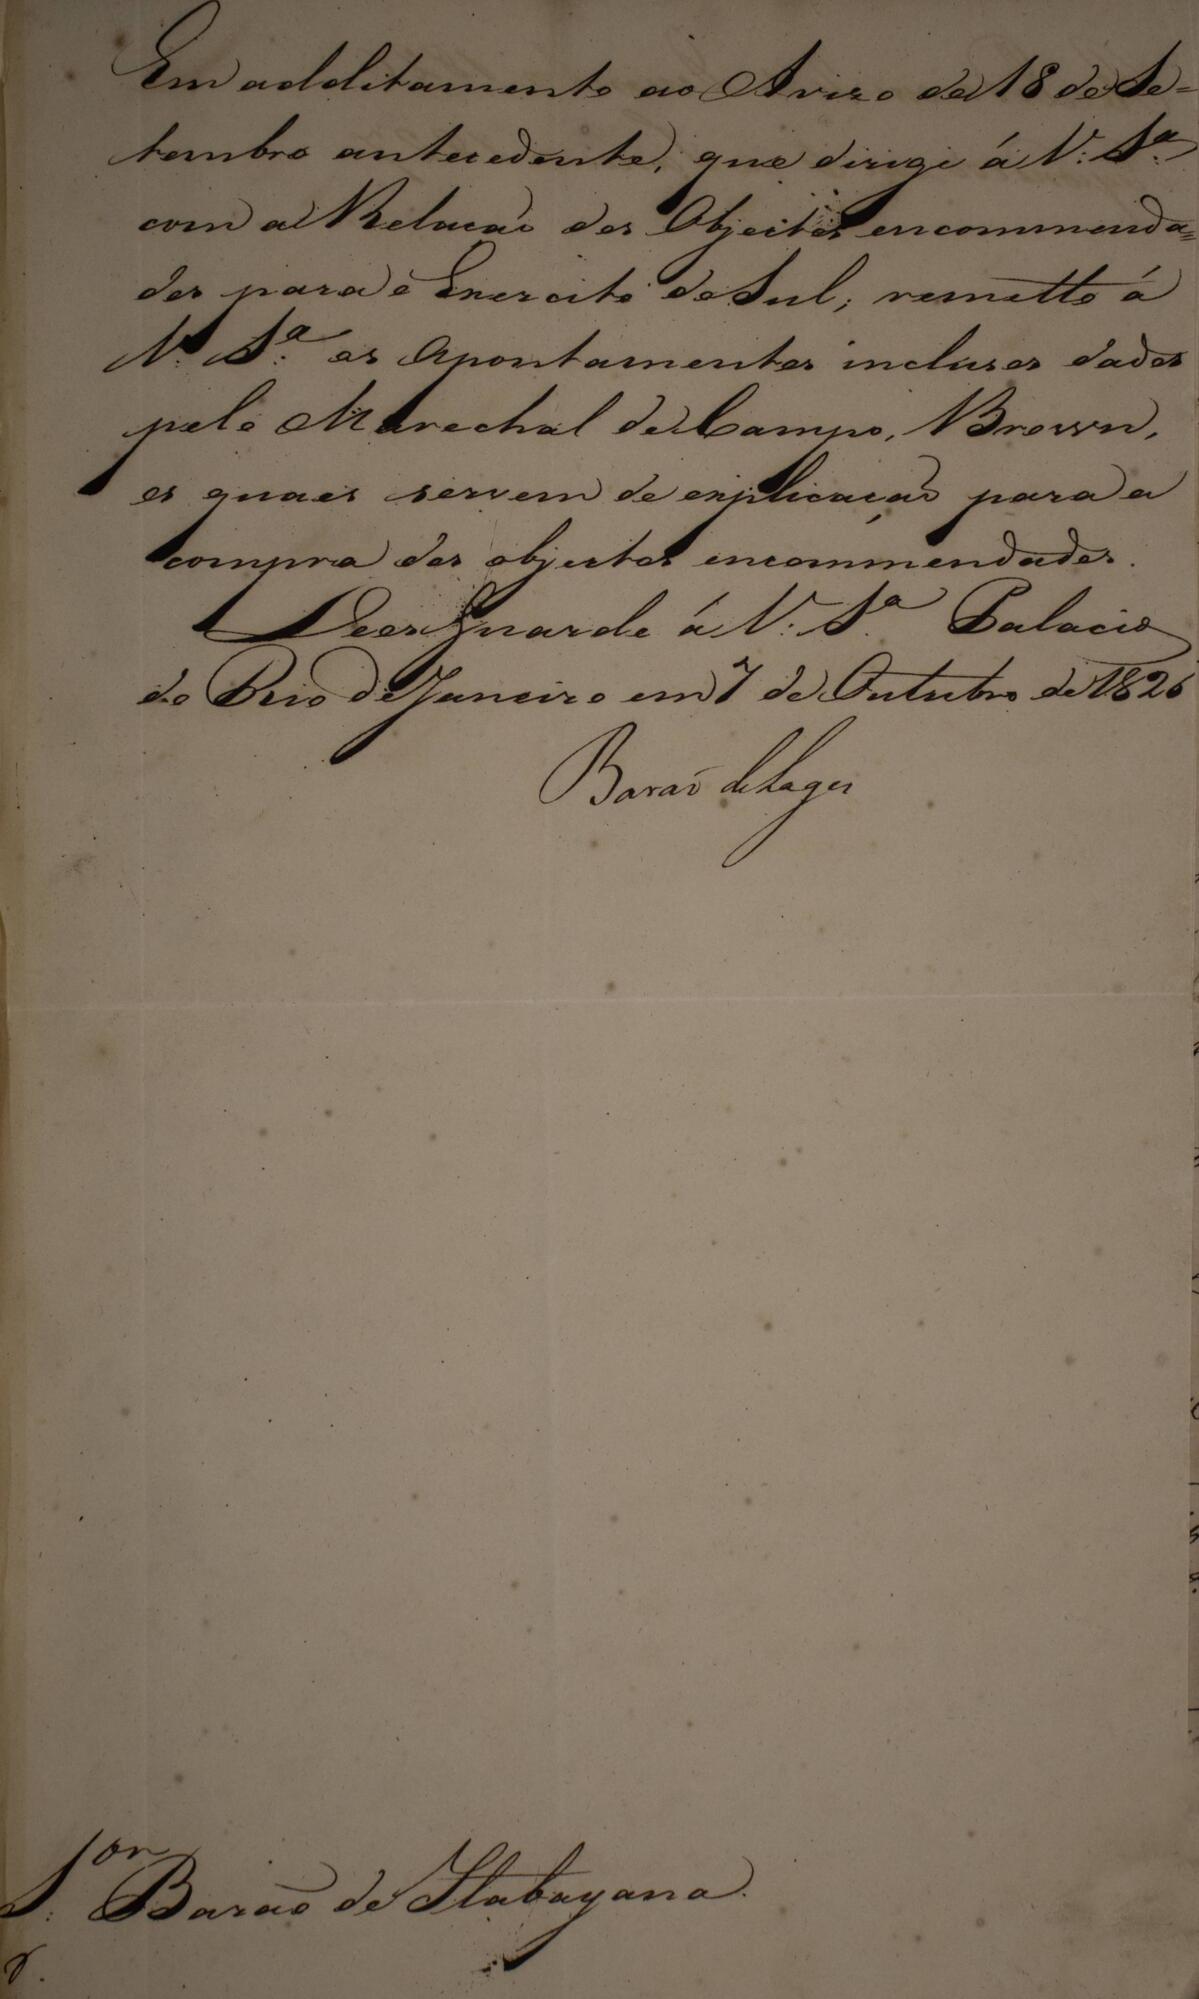 Em additamento ao Avizo de 18 de Se=
tembro antecedente, que dirigi á V. Sª.
com a Relação dos Objectos encommenda=
dos para o Exercito do Sul; remetto á
V. Sª. os Apontamentos inclusos dados
pelo Marechal de Campo, Brown,
os quaes servem de explicação para a
compra dos objectos encommendados.
Deos Guarde á V. Sª. Palacio
do Rio de Janeiro em 7 de Outubro de 1826
Barão de Lages
Sor. Barão de Itabayana.